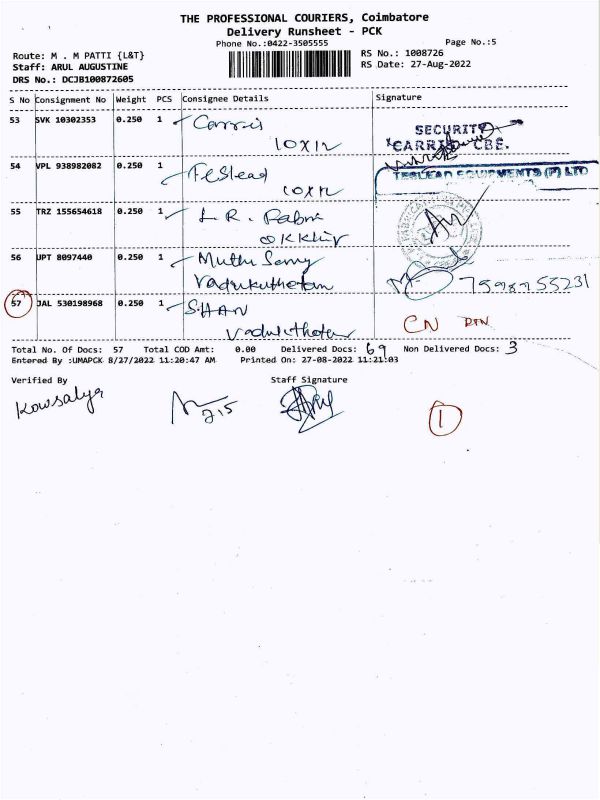 THE PROFESSIONAL COURIERS, Coimbatore
Delivery Runsheet - PCK
Phone No.:0422-3505555
Page No.:5
Route: M . M PATTI {L&T}
RS No.: 1008726
Staff: ARUL AUGUSTINE
RS Date: 27-Aug-2022
DRS No.: DCJB100872605
S No Consignment No Weight PCS Consignee Details Signature
53 SVK 10302353 0.250 1 Carris
LOXIN
SECURITY
CARRIS CBE.
54 VPL 938982082 0.250 1 Teslead
LOXIN
TESLEAD EQUIPMENTS (P) LTD
55 TRZ 155654618 0.250 1 L. R. Fabri
56 UPT 8097440 0.250 1 Muthu Samy
Vadukuthotam
75988 55231
57 JAL 530198968 0.250 1 SHAN
Vadukuthotam
CN RTN
Total No. Of Docs: 57 Total COD Amt: 0.00 Delivered Docs: 69 Non Delivered Docs: 3
Entered By :UMAPCK 8/27/2022 11:20:47 AM Printed On: 27-08-2022 11:21:03
Verified By Staff Signature
Kowsalya
7.15
1